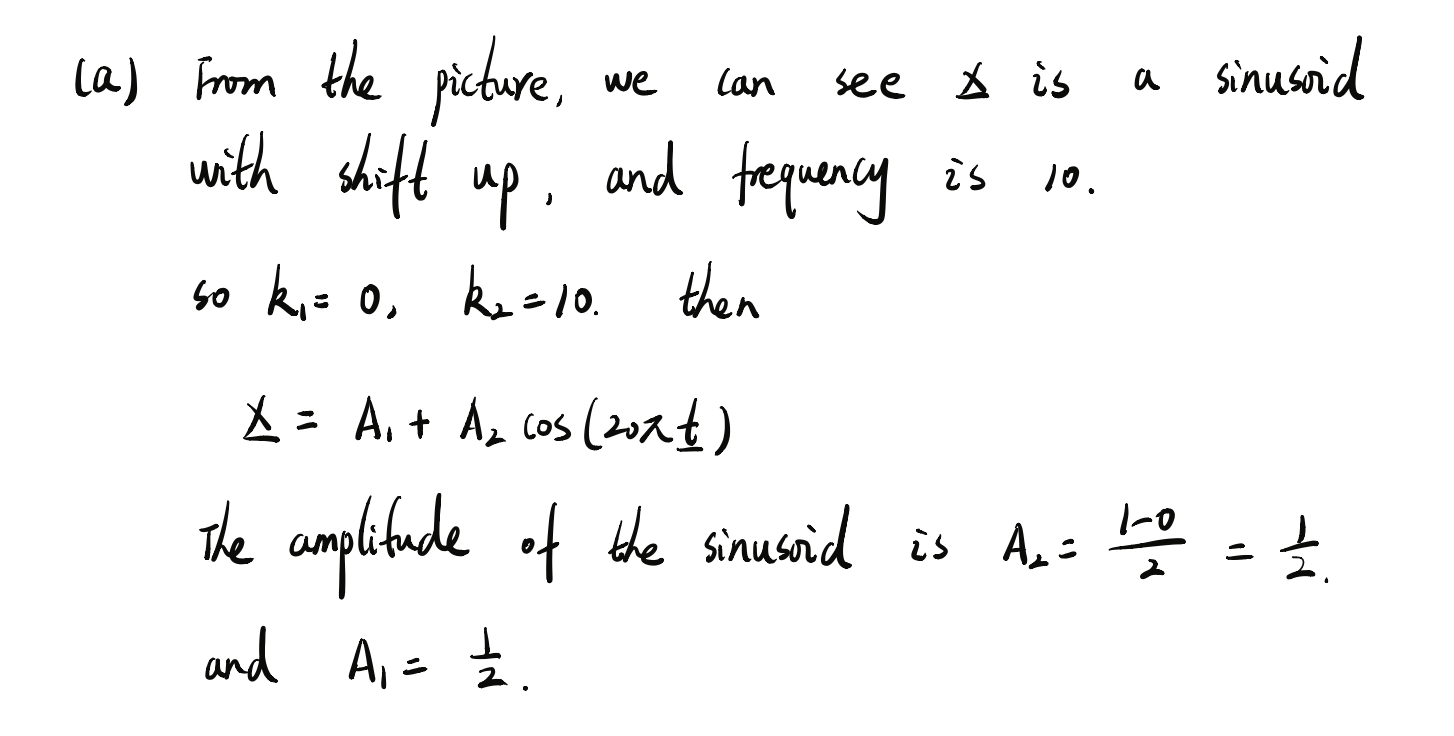 (a) From the picture, we can see x is a sinusoid
with shift up, and frequency is 10.
so k₁ = 0, k₂ = 10. then
x = A₁ + A₂ cos(20πt)
The amplitude of the sinusoid is A₂ = (1-0)/2 = 1/2.
and A₁ = 1/2.